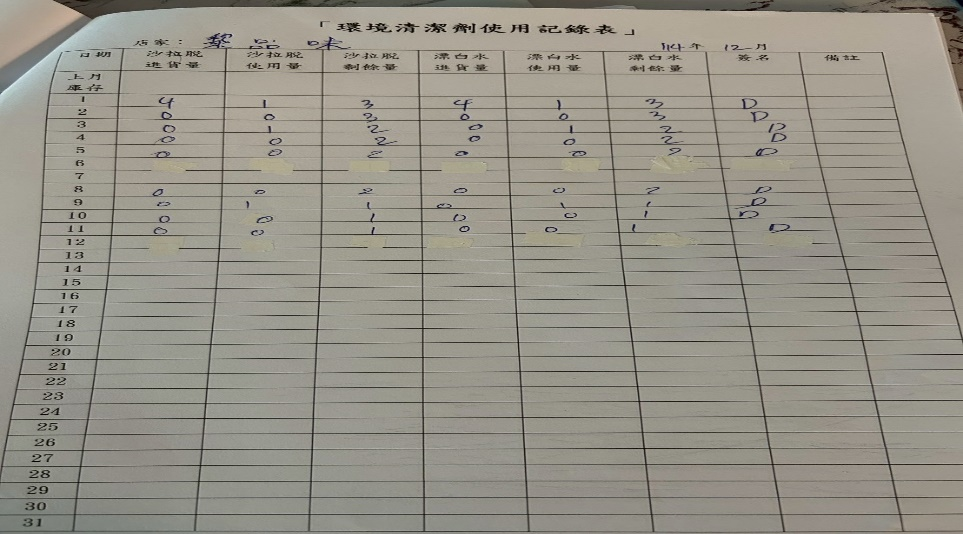 「環境清潔劑使用記錄表」
店家： 黎品味 114年 12月
日期 沙拉脫進貨量 沙拉脫使用量 沙拉脫剩餘量 漂白水進貨量 漂白水使用量 漂白水剩餘量 簽名 備註
上月庫存
1 4 1 3 4 1 3 D
2 0 0 3 0 0 3 D
3 0 1 2 0 1 2 D
4 0 0 2 0 0 2 D
5 0 0 2 0 0 2 D
6
7
8 0 0 2 0 0 2 D
9 0 1 1 0 1 1 D
10 0 0 1 0 0 1 D
11 0 0 1 0 0 1 D
12
13
14
15
16
17
18
19
20
21
22
23
24
25
26
27
28
29
30
31